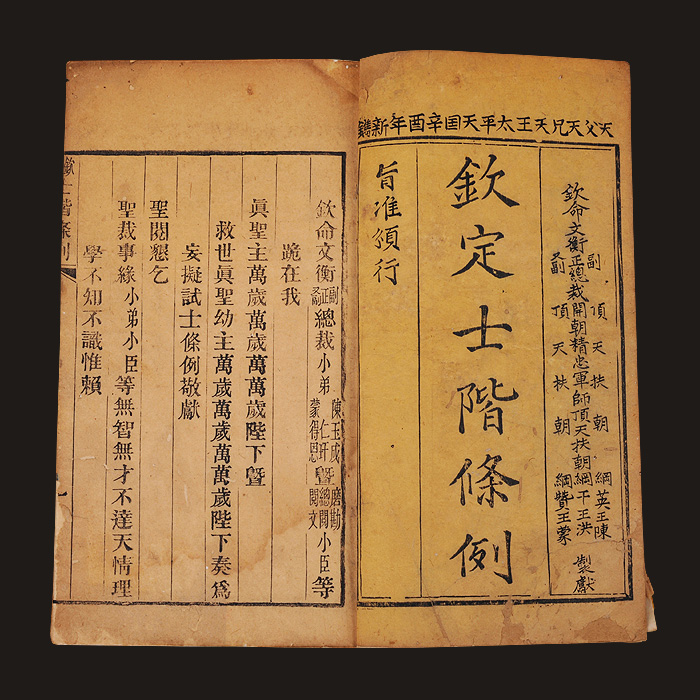 天父天兄天王太平天囯辛酉年新鐫
副頂天扶朝綱英王陳
欽命文衡正總裁開朝精忠軍師頂天扶朝綱干王洪製獻
又副頂天扶朝綱贊王蒙
欽定士階條例
旨准頒行
欽命文衡正副又副總裁小弟陳玉成仁玕蒙得恩曁磨勘總閱閱文小臣等
跪在我
眞聖主萬歲萬歲萬萬歲陛下曁
救世眞聖幼主萬歲萬歲萬萬歲陛下奏爲
妄擬試士條例敬獻
聖閱懇乞
聖裁事緣小弟小臣等無智無才不達天情理
學不知不識惟賴